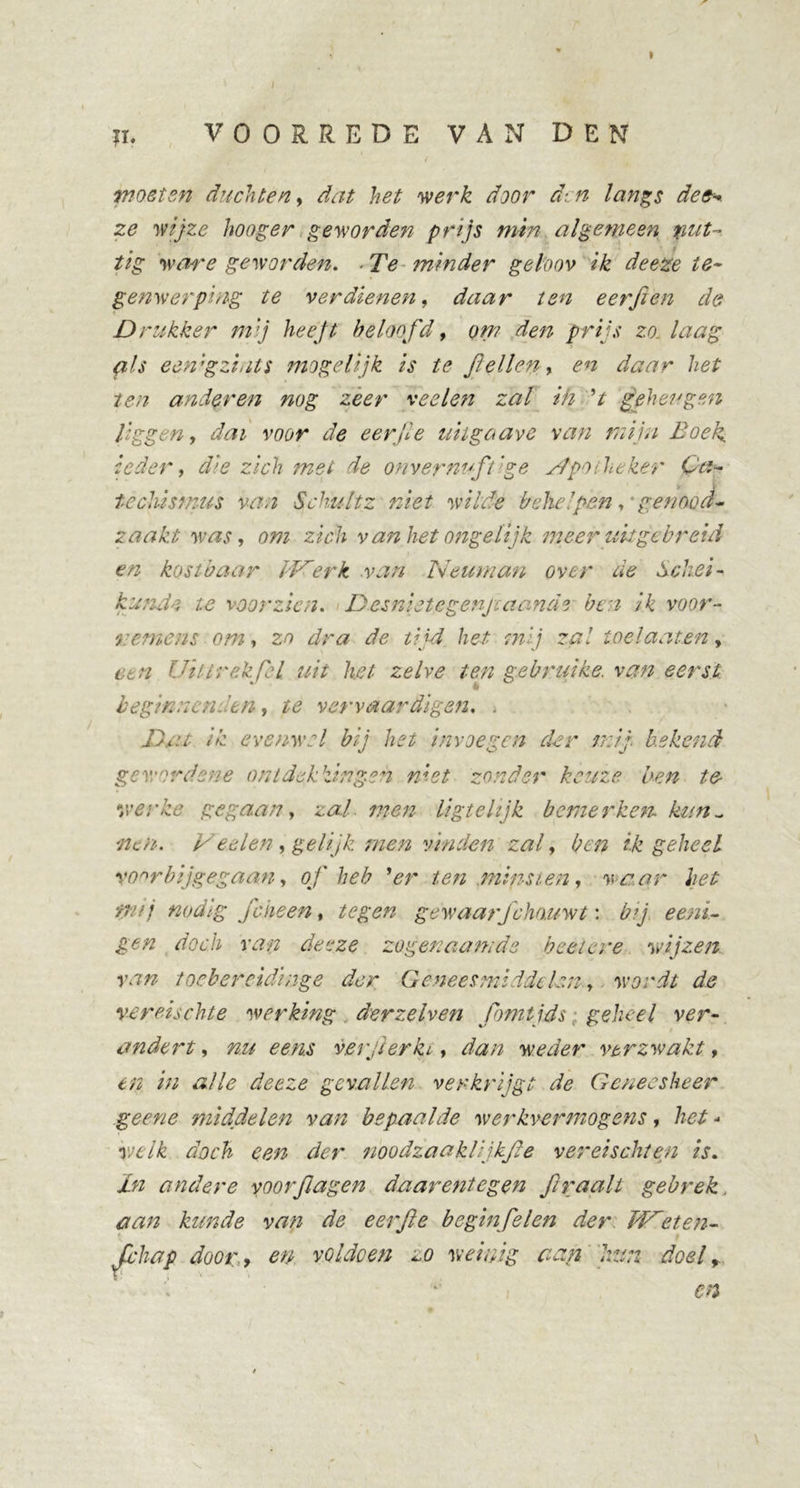 II. VOORREDE VAN DEN
moeten duchten, dat het werk door den langs dee-
ze wijze hooger geworden prijs min algemeen nut-
tig ware geworden. Te minder geloov ik deeze te-
genwerping te verdienen, daar ten eerſten de
Drukker mij heeft beloofd, om den prijs zo laag
als eenigzints mogelijk is te ſtellen, en daar het
ten anderen nog zeer veelen zal in 't geheugen
liggen, dat voor de eerſte uitgaave van mijn Boek,
ieder, die zich met de onvernuftige Apotheker Ca-
techismus van Schultz niet wilde behelpen, genood-
zaakt was, om zich van het ongelijk meer uitgebreid
en kostbaar Werk van Neuman over de Schei-
kunde te voorzien. Desnietegenſtaande ben ik voor-
nemens om, zo dra de tijd het mij zal toelaaten,
een Uittrekſel uit het zelve ten gebruike van eerst
beginnenden, te vervaardigen.
Dat ik evenwel bij het invoegen der mij bekend
gewordene ontdekkingen niet zonder keuze ben te
werke gegaan, zal men ligtelijk bemerken kun-
nen. Veelen, gelijk men vinden zal, ben ik geheel
voorbijgegaan, of heb 'er ten minsten, waar het
mij nodig ſcheen, tegen gewaarſchouwt: bij eeni-
gen doch van deeze zogenaamde beetere wijzen
van toebereidinge der Geneesmiddelen, wordt de
vereischte werking derzelven ſomtjds geheel ver-
andert, nu eens verſterkt, dan weder verzwakt,
en in alle deeze gevallen verkrijgt de Geneesheer
geene middelen van bepaalde werkvermogens, het-
welk doch een der noodzaaklijkſte vereischten is.
In andere voorſlagen daarentegen ſtraalt gebrek
aan kunde van de eerſte beginſelen der Weten-
ſchap door, en voldoen zo weinig aan hun doel,
en